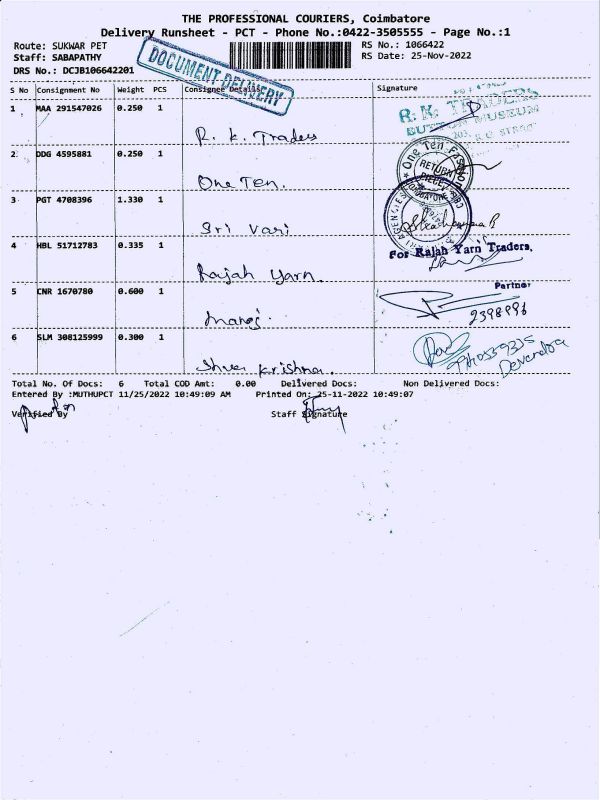 THE PROFESSIONAL COURIERS, Coimbatore
Delivery Runsheet - PCT - Phone No.:0422-3505555 - Page No.:1
Route: SUKWAR PET
RS No.: 1066422
Staff: SABAPATHY
RS Date: 25-Nov-2022
DRS No.: DCJB106642201
DOCUMENT DELIVERY
S No Consignment No Weight PCS Consignee Details Signature
1 MAA 291547026 0.250 1 R. K. Traders
R. K. TRADERS
BUTTON MUSEUM
2 DDG 4595881 0.250 1 One Ten.
One Ten Fashion
RETURN
3 PGT 4708396 1.330 1 Sri Vari
AGENCIES
4 HBL 51712783 0.335 1 Rajah Yarn.
For Rajah Yarn Traders,
Partner
5 CNR 1670780 0.600 1 Manoj.
2398996
6 SLM 308125999 0.300 1 Shree Krishna.
Devendra
Total No. Of Docs: 6 Total COD Amt: 0.00 Delivered Docs: Non Delivered Docs:
Entered By :MUTHUPCT 11/25/2022 10:49:09 AM Printed On: 25-11-2022 10:49:07
Verified By Staff Signature